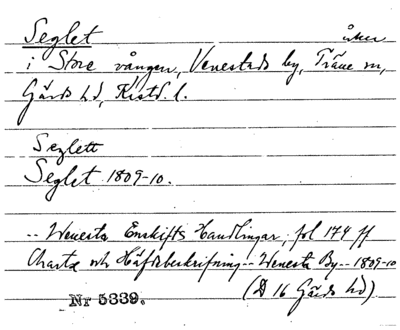 Seglet åker
i Store vången, Venestads by, Träne sn,
Gärds hd, Krist. l.
Sezlett
Seglet 1809-10.
-- Wenesta Enskifts Handlingar, fol 174 ff
Charta och Häfdebeskrifning -- Wenesta By -- 1809-10
(D 16 Gärds hd)
Nr 5339.